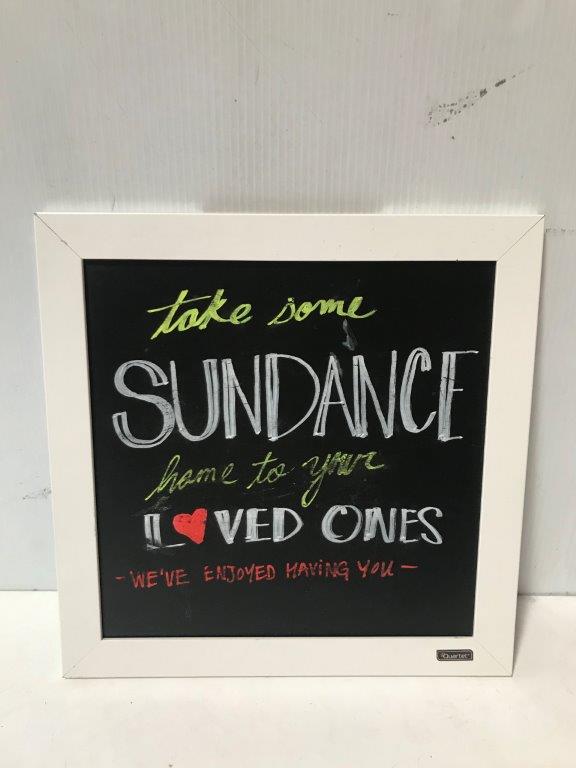 take some
SUNDANCE
home to your
L❤VED ONES
- WE'VE ENJOYED HAVING YOU -
Quartet